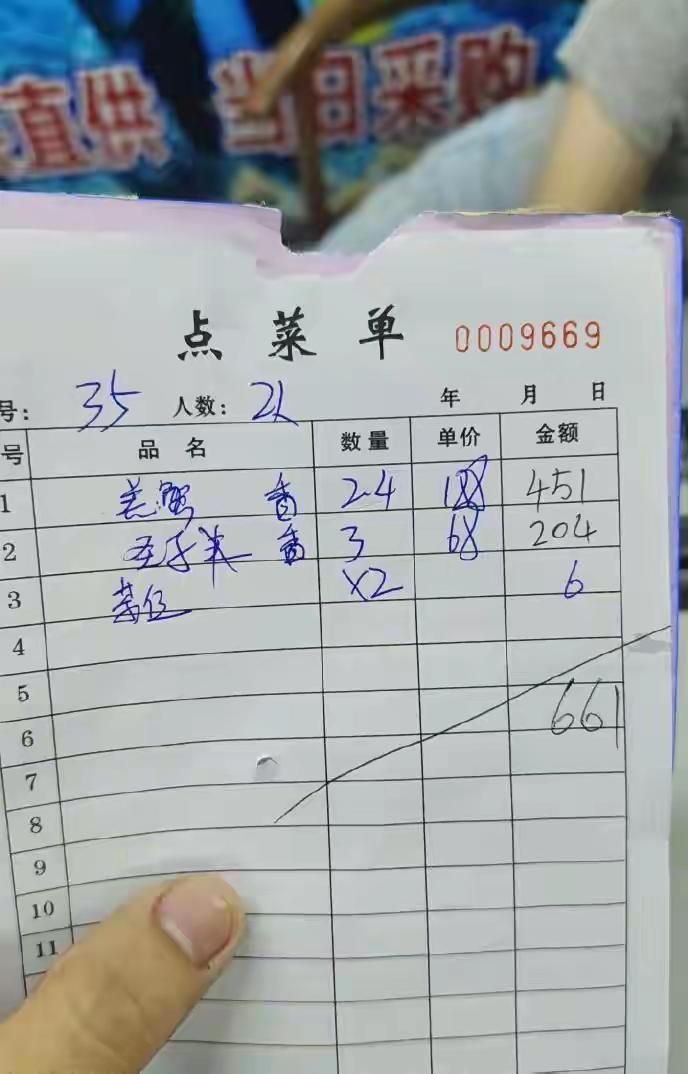 直供 当日采购
点菜单 0009669
号: 35 人数: 2人 年 月 日
号 品名 数量 单价 金额
1 羔蟹 24 188 451
2 3 68 204
3 茶位 X2 6
4
5
661
6
7
8
9
10
11